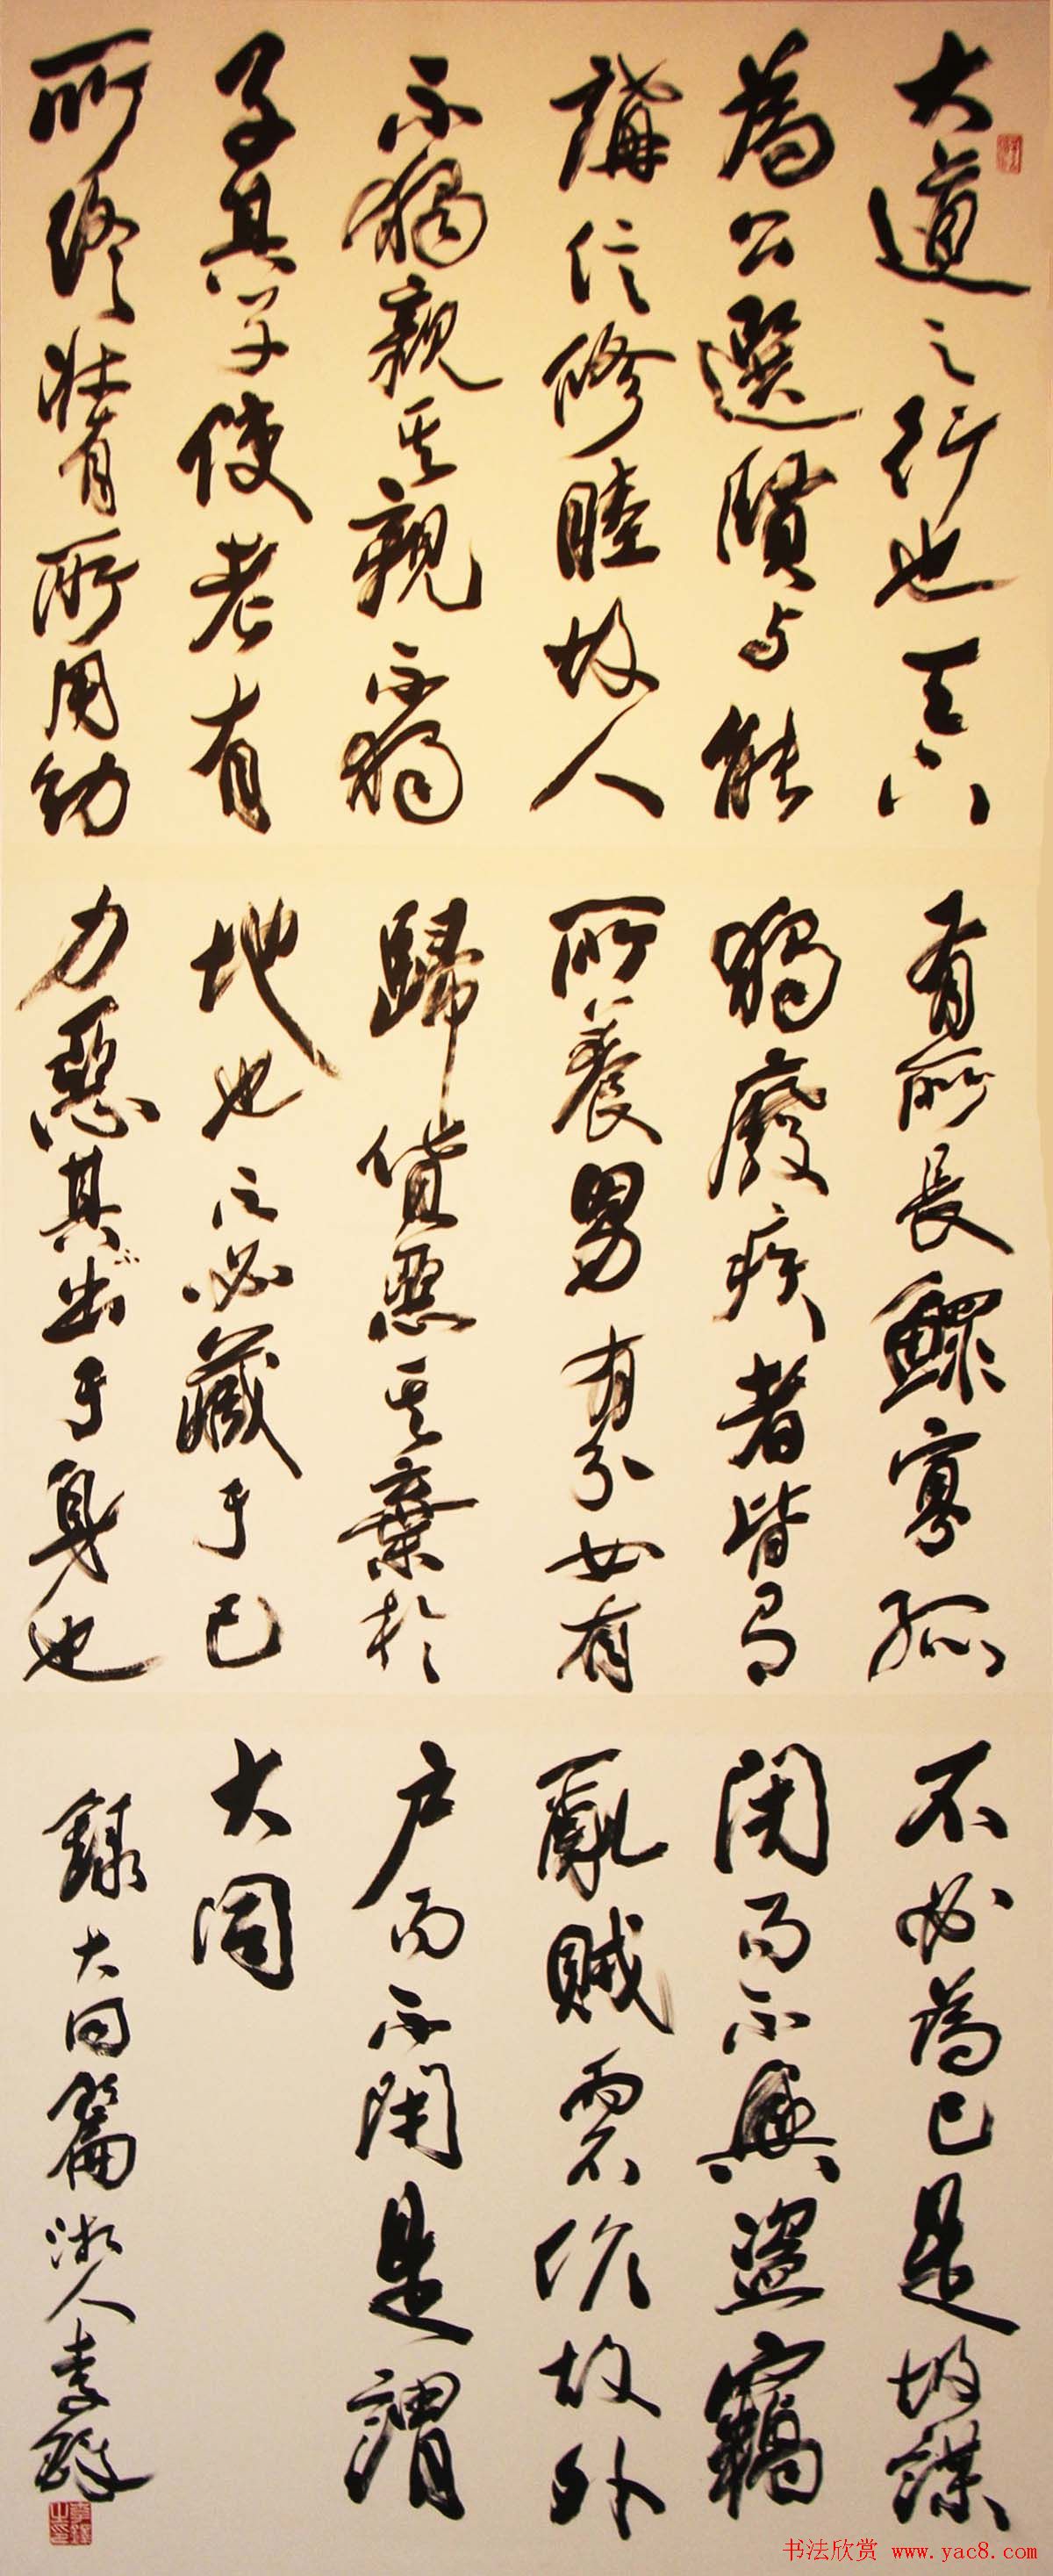 大道之行也天下
為公選賢与能
講信修睦故人
不獨親其親不獨
子其子使老有
所終壯有所用幼
有所長鰥寡孤
獨廢疾者皆有
所養男有分女有
歸貨惡其棄於
地也不必藏于己
力惡其不出于身也
不必為己是故謀
閉而不興盜竊
亂賊而不作故外
户而不閉是謂
大同
錄大同篇湘人李鐸
书法欣赏 www.yac8.com